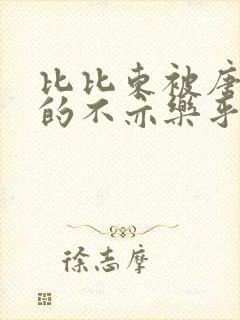 比比东被唐
的不亦乐乎
徐志摩